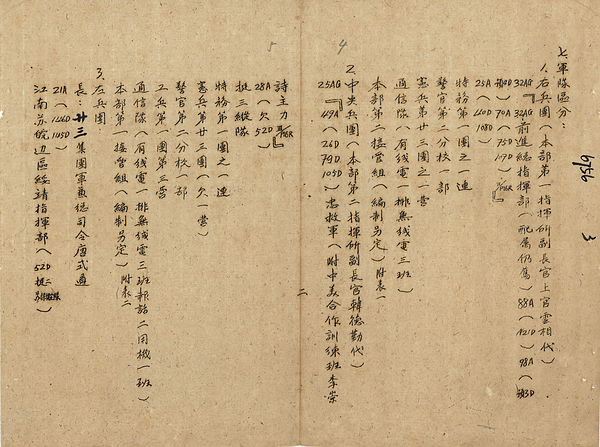 七、軍隊區分：
1、右兵團（本部第一指揮所副長官上官雲相代）
32AG『32AG前進總指揮部（配屬仍舊）88A（421D）98A（預3D
預10D）70A（75D 107D）
25A（40D 108D）
特務第一團之一連
警官第二分校一部
憲兵第廿三團之一營
通信隊（有线電一排無线電三班）
本部第二接營組（編制另定）附表一
2、中央兵團（本部第二指揮所副長官韓德勤代）
25AG『49A（26D 79D 105D）忠救軍（附中美合作訓練班李榮
詩主力
28A（欠52D）
挺三縱隊
特務第一團之一連
憲兵第廿三團（欠一營）
警官第二分校一部
工兵第一團第三營
通信隊（有线電一排無线電三班報話二用機一班）
本部第一接營組（編制另定）附表二
3、左兵團
長：廿三集團軍兼總司令唐式遵
21A（146D 145D）
江南苏皖边區綏靖指揮部（52D 挺二
二
3
4
5